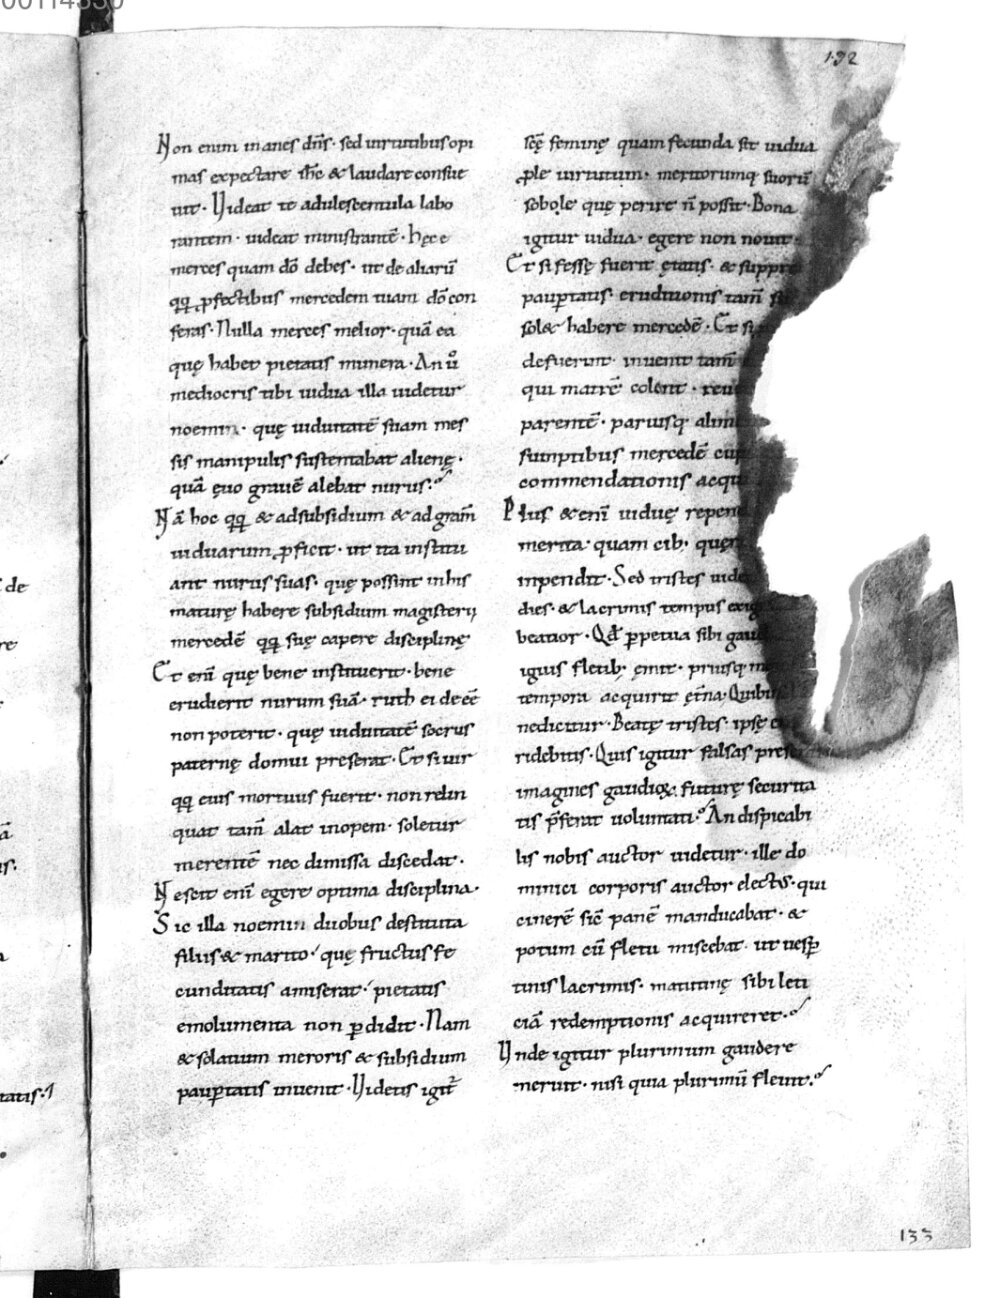 00114330
192
Non enim inanes dñs · sed uirtutibus opi
mas expectare ihc̄ & laudare consue
uit · Uideat te adulescentula labo
rantem · uideat ministrantē · hęc e
merces quam dō debes · ut de aliarū
qq; ꝓfectibus mercedem tuam dō con
feras · Nulla merces melior · quā ea
quę habet pietatis munera · An ů
mediocris tibi uidua illa uidetur
noemin · quę uiduitatē suam mes
sis manipulis sustentabat alienę ·
quā ęuo grauē alebat nurus ·
Nā hoc qq; & ad subsidium & ad gratiā
uiduarum ꝓficit · ut ita institu
ant nurus suas · quę possint in his
maturę habere subsidium magisterij
mercedē qq; suę capere disciplinę
Et eni quę bene instituerit · bene
erudierit nurum suā · ruth ei deeē
non poterit · quę uiduitatē socrus
paternę domui preferat · Et si uir
qq; eius mortuus fuerit · non relin
quat tam̄ alat inopem · soletur
merentē nec dimissa discedat ·
Nescit eni egere optima disciplina ·
Sic illa noemin duobus destituta
filiis & marito · quę fructus fe
cunditatis amiserat · pietatis
emolumenta non ꝑdidit · Nam
& solatium meroris & subsidium
pauꝑtatis inuenit · Uidetis igit̄
scę feminę quam fecunda sit uidua
ꝓle uirtutum · meritorumq; suorū
sobole quę perire n̄ possit · Bona
igitur uidua · egere non nouit ·
Et si fessę fuerit ętatis · & suppre
pauꝑtatis · eruditionis tam̄
solet habere mercedē · Et si
defuerint · inuenit tam̄
qui matrē colent · reue
parentē · paruisq; alim
sumptibus mercedē cup
commendationis acqui
Plus & eni uiduę repen
merita · quam cib; quem
inpendit · Sed tristes uide
dies · & lacrimis tempus exig
beatior · Qđ ꝑpetua sibi gau
iguis fletib; emit · priusq; m
tempora acquirit ęt̄na · Quibus
nedicitur · Beatę tristes · ipsę
ridebitis · Quis igitur falsas prese
imagines gaudioꝝ · futurę securita
tis p̄ferat uoluntati · An dispicabi
lis nobis auctor uidetur · ille do
minici corporis auctor electꝰ · qui
cinerē sic̄ panē manducabat · &
potum cū fletu miscebat · ut uesꝑ
tinis lacrimis · matutinę sibi leti
ciā redemptionis acquireret ·
Unde igitur plurimum gaudere
meruit · nisi quia plurimū fleuit ·
133